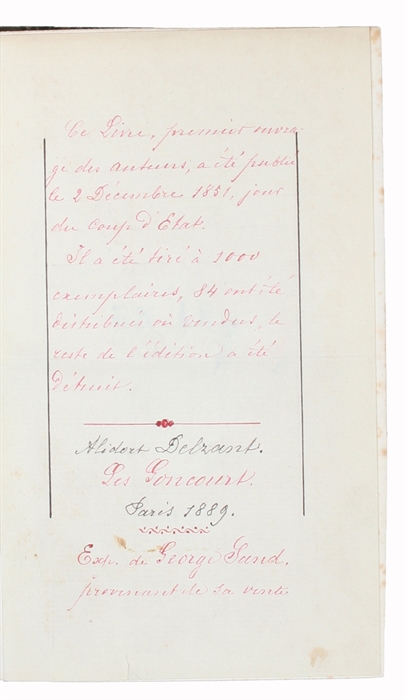 Ce Livre, premier ouvra
ge des auteurs, a été publié
le 2 Décembre 1851, jour
du coup d'Etat.
Il a été tiré à 1000
exemplaires, 84 ont été
distribués où vendus, le
reste de l'édition a été
détruit.
Alidort Delzant.
Les Goncourt.
Paris 1889.
Exp. de George Sand.
provenant de sa vente